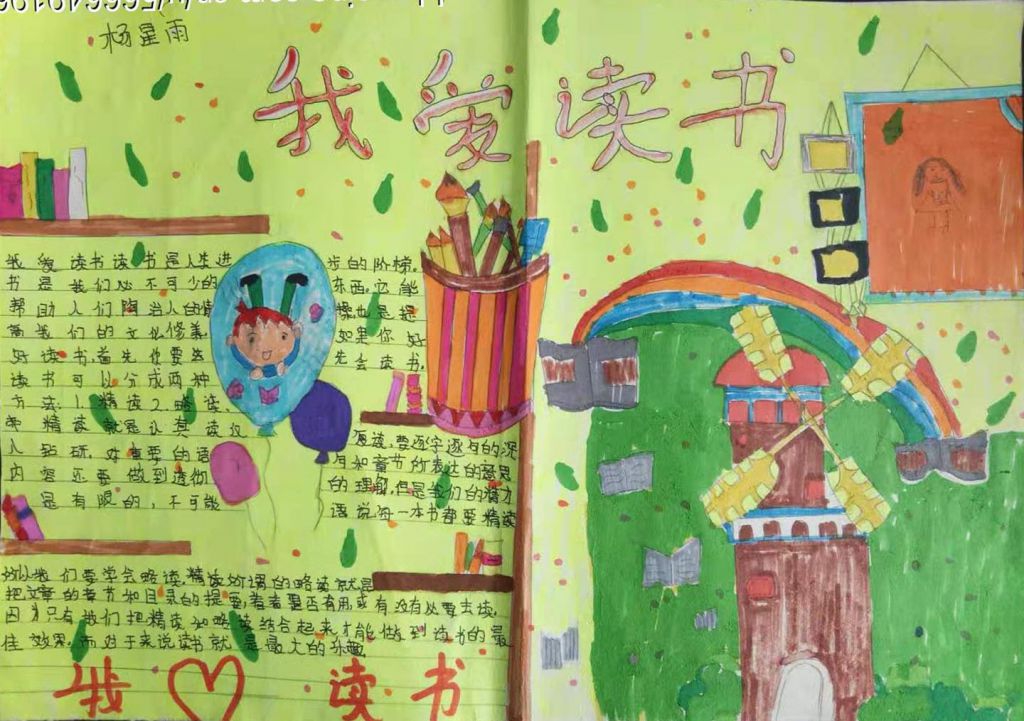 杨星雨
我爱读书
我爱读书读书是人类进步的阶梯.
书是我们必不可少的东西,它能
帮助人们陶冶人的情操也是提
高我们的文化修养.如果你好
好读书,首先你要 先会读书.
读书可以分成两种
方法:1.精读2.略读、
精读就是认真读 读,要逐字逐句的深
入钻研.对重要的语句和章节所表达的意思
内容还要做到透彻的理解,但是我们的精力
是有限的,不可能 说每一本书都要精读
所以我们要学会略读,精读所谓的略读就是
把文章的章节如目录的提要,看看是否有用,或有没有必要去读,
因为只有我们把精读和略读结合起来才能做到读书的最
佳效果.而对于来说读书就是最大的乐趣
我 读书